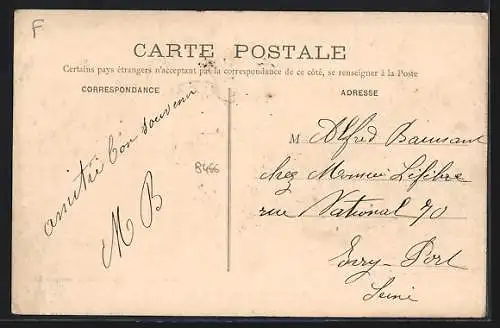 F
CARTE POSTALE
Certains pays étrangers n'acceptant pas la correspondance de ce côté, se renseigner à la Poste
CORRESPONDANCE
ADRESSE
amitié bon souvenir
M B
8466
M Alfred
chez Monsieur Lefebre
rue National 70
Ivry-Port
Seine